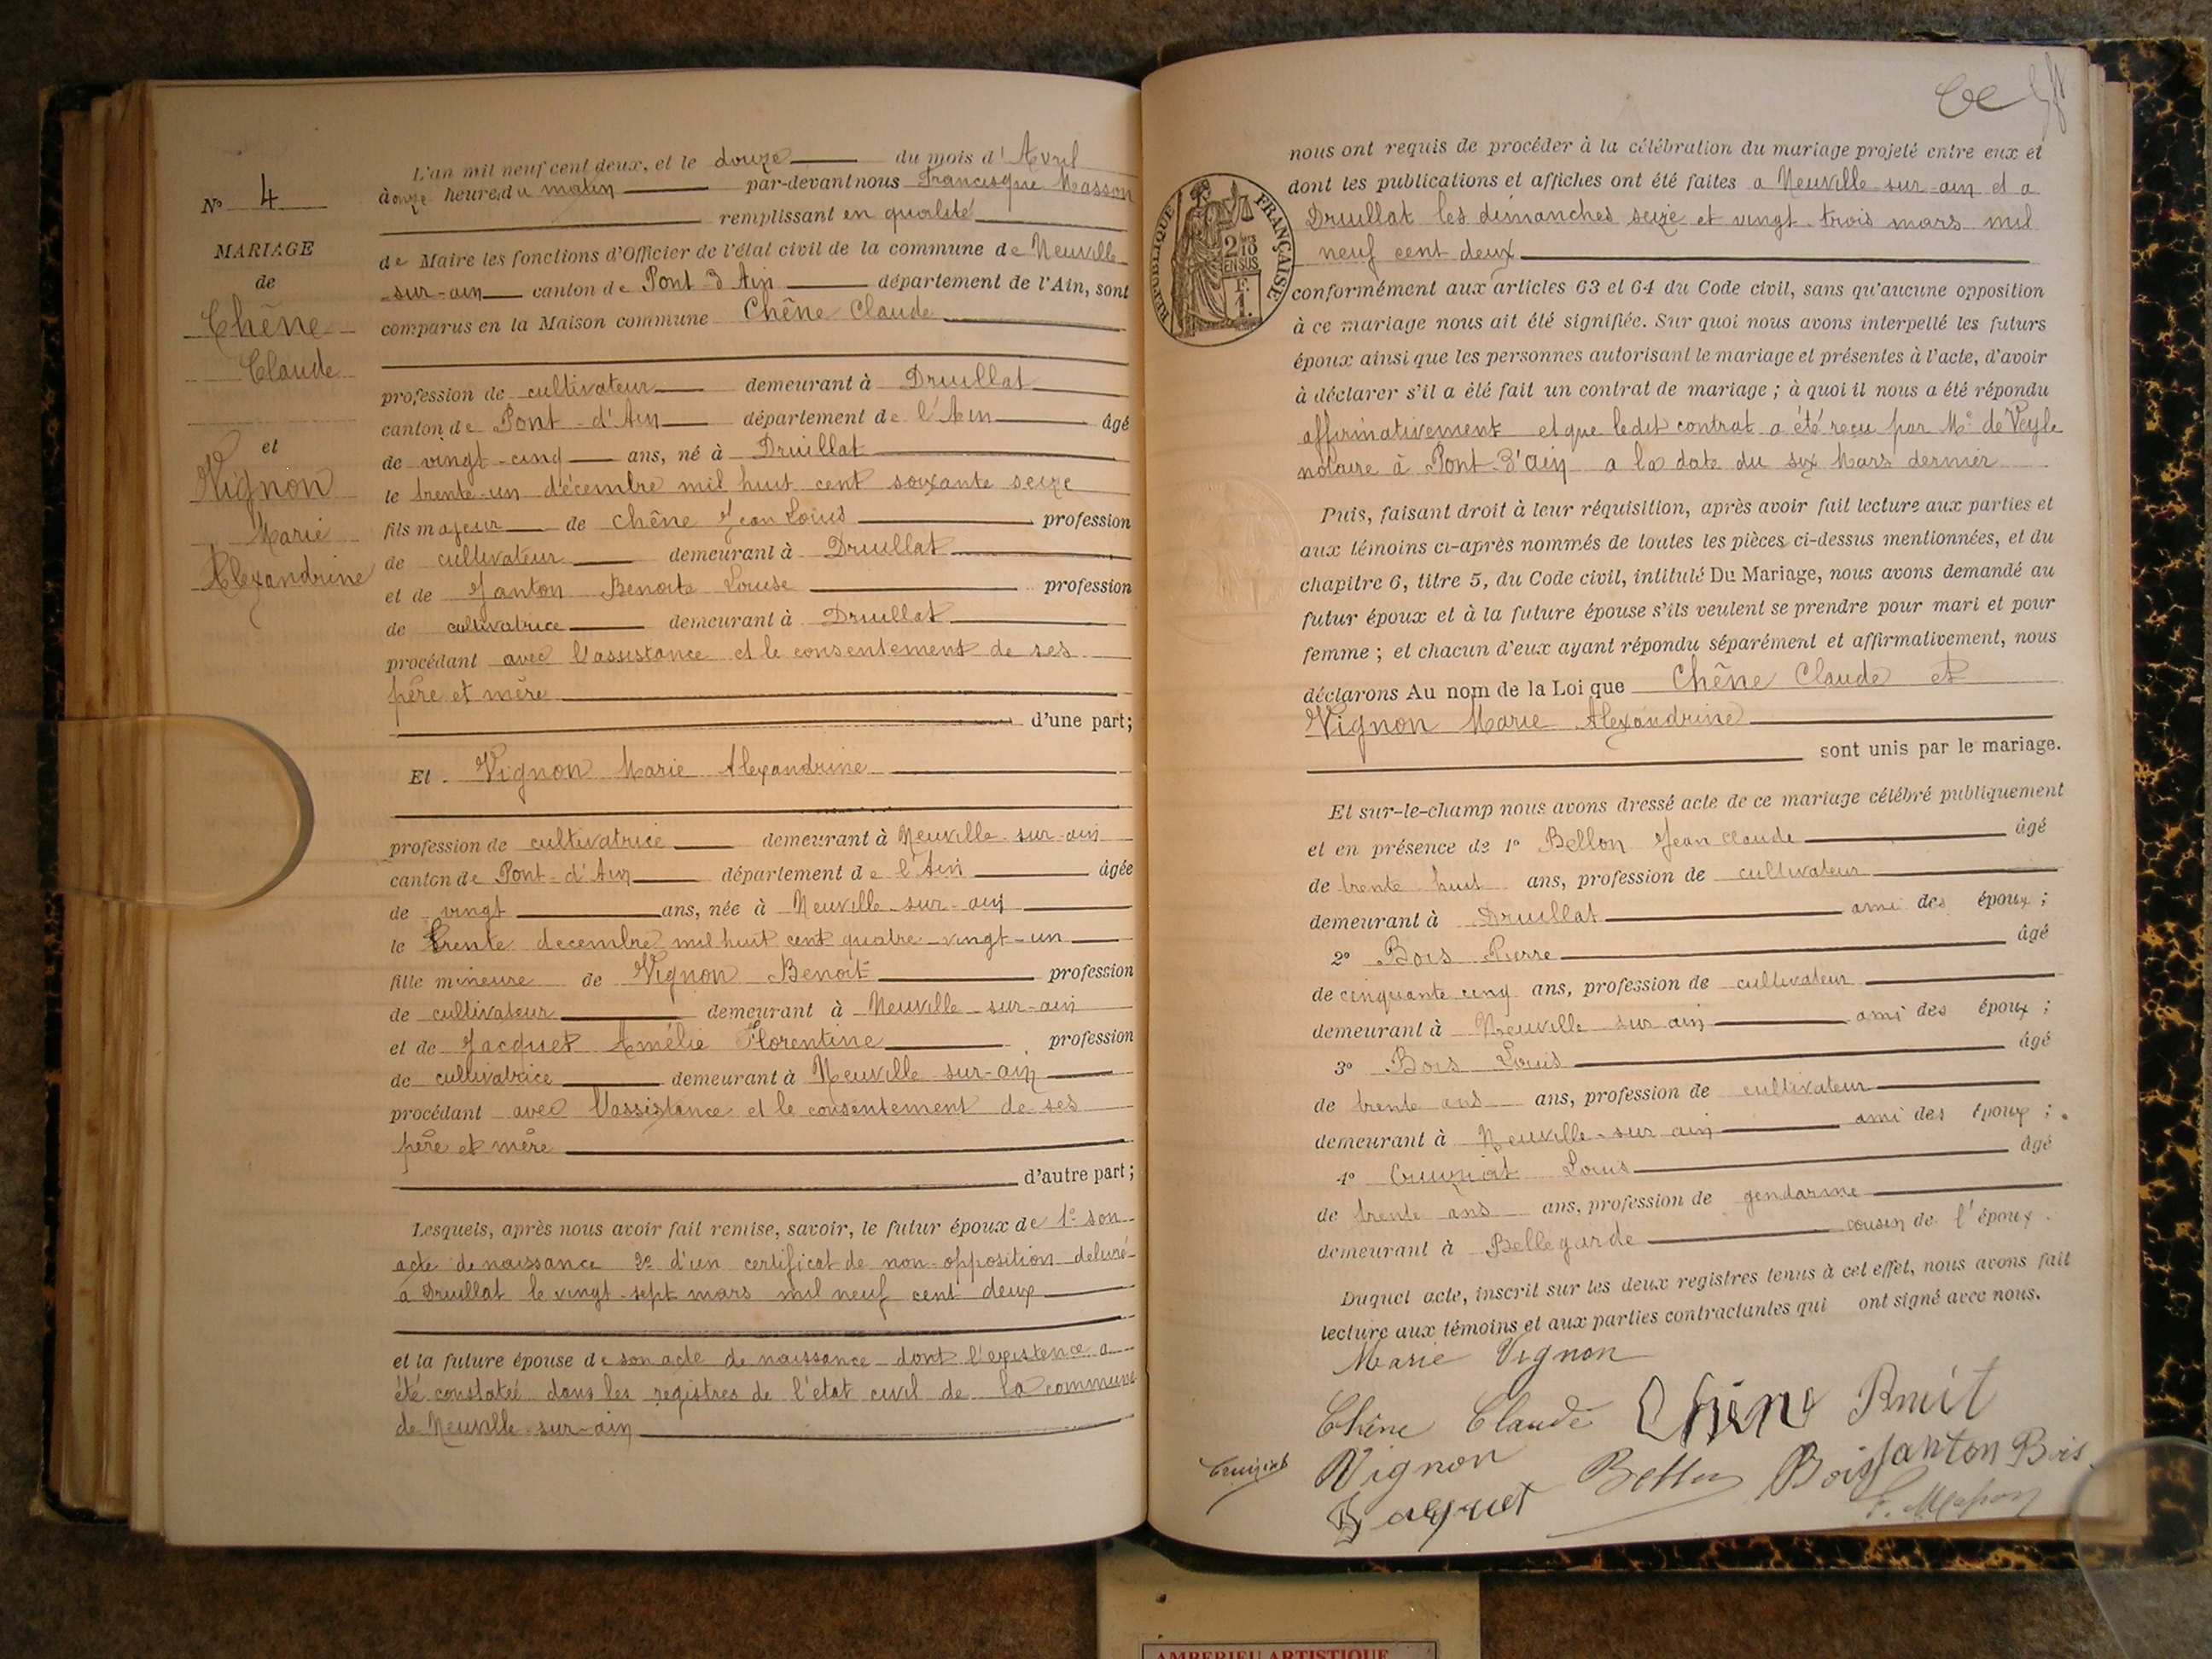 N° 4
MARIAGE
de
Chêne
Claude
et
Vignon
Marie
Alexandrine
L'an mil neuf cent deux, et le douze du mois d'Avril
à onze heure du matin par-devant nous Francisque Masson
remplissant en qualité
de Maire les fonctions d'Officier de l'état civil de la commune de Neuville
-sur-ain canton de Pont d'Ain département de l'Ain, sont
comparus en la Maison commune Chêne Claude
profession de cultivateur demeurant à Druillat
canton de Pont-d'Ain département de l'Ain âgé
de vingt-cinq ans, né à Druillat
le trente-un décembre mil huit cent soixante seize
fils majeur de Chêne Jean Louis profession
de cultivateur demeurant à Druillat
et de Janton Benoite Louise profession
de cultivatrice demeurant à Druillat
procédant avec l'assistance et le consentement de ses
père et mère
d'une part;
Et Vignon Marie Alexandrine
profession de cultivatrice demeurant à Neuville-sur-ain
canton de Pont-d'Ain département de l'Ain âgée
de vingt ans, née à Neuville-sur-ain
le trente decembre mil huit cent quatre-vingt-un
fille mineure de Vignon Benoit profession
de cultivateur demeurant à Neuville-sur-ain
et de Jacquet Amélie Florentine profession
de cultivatrice demeurant à Neuville-sur-ain
procédant avec l'assistance et le consentement de ses
père et mère
d'autre part;
Lesquels, après nous avoir fait remise, savoir, le futur époux de 1° son
acte de naissance 2° d'un certificat de non-opposition delivré
a Druillat le vingt-sept mars mil neuf cent deux
et la future épouse de son acte de naissance dont l'existence a
été constateé dans les registres de l'état civil de la commune
de Neuville-sur-ain
nous ont requis de procéder à la célébration du mariage projeté entre eux et
dont les publications et affiches ont été faites a Neuville-sur-ain et a
Druillat les dimanches seize et vingt-trois mars mil
neuf cent deux
RÉPUBLIQUE FRANÇAISE
2/10
EN SUS
F.
1.
conformément aux articles 63 et 64 du Code civil, sans qu'aucune opposition
à ce mariage nous ait été signifiée. Sur quoi nous avons interpellé les futurs
époux ainsi que les personnes autorisant le mariage et présentes à l'acte, d'avoir
à déclarer s'il a été fait un contrat de mariage ; à quoi il nous a été répondu
affirmativement et que ledit contrat a été reçu par Me de Veyle
notaire à Pont-d'ain a la date du six Mars dernier
Puis, faisant droit à leur réquisition, après avoir fait lecture aux parties et
aux témoins ci-après nommés de toutes les pièces ci-dessus mentionnées, et du
chapitre 6, titre 5, du Code civil, intitulé Du Mariage, nous avons demandé au
futur époux et à la future épouse s'ils veulent se prendre pour mari et pour
femme ; et chacun d'eux ayant répondu séparément et affirmativement, nous
déclarons Au nom de la Loi que Chêne Claude et
Vignon Marie Alexandrine
sont unis par le mariage.
Et sur-le-champ nous avons dressé acte de ce mariage célébré publiquement
et en présence de 1° Bellon Jean Claude âgé
de trente huit ans, profession de cultivateur
demeurant à Druillat ami des époux ;
2° Bois Pierre âgé
de cinquante cinq ans, profession de cultivateur
demeurant à Neuville sur ain ami des époux ;
3° Bois Louis âgé
de trente ans ans, profession de cultivateur
demeurant à Neuville-sur ain ami des époux ;
4° Louis âgé
de trente ans ans, profession de gendarme
demeurant à Bellegarde cousin de l'époux.
Duquel acte, inscrit sur les deux registres tenus à cet effet, nous avons fait
lecture aux témoins et aux parties contractantes qui ont signé avec nous.
Marie Vignon
Chêne Claude Chêne
Vignon Bellon Bois Janton Bois
Jacquet F. Masson
AMBERIEU ARTISTIQUE